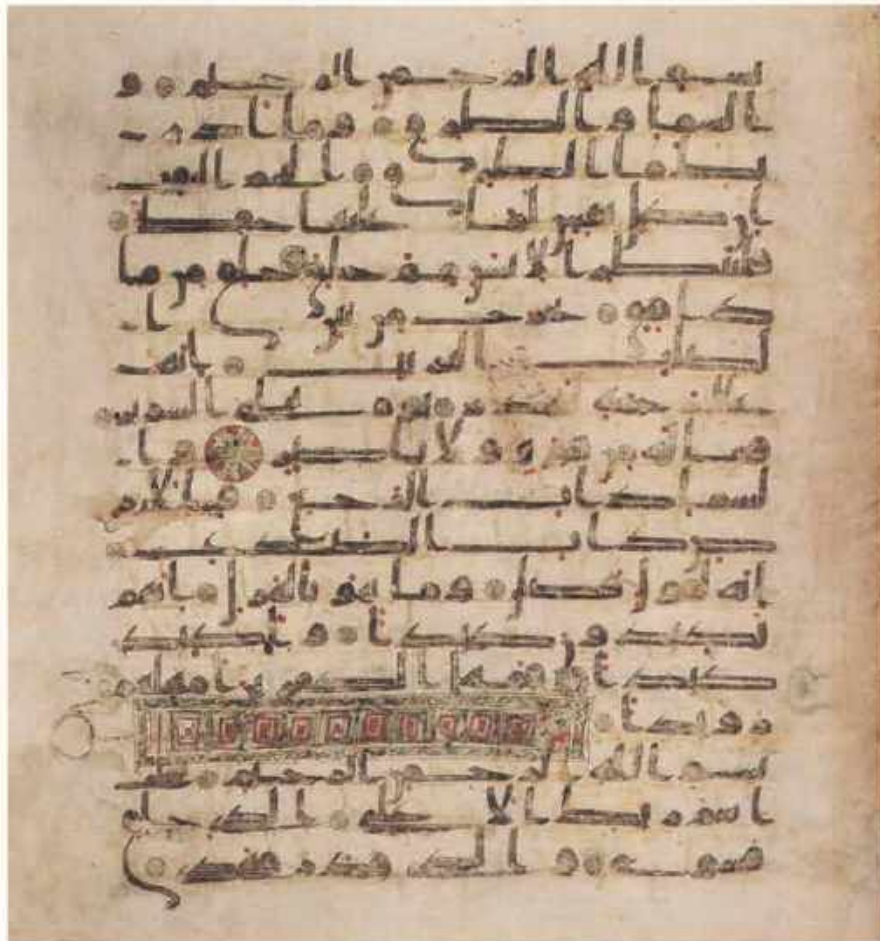 بسم الله الرحمن الرحيم و
السما والطارق وما ادر
يك ما الطارق النجم الثقب
ان كل نفس لما عليها حفظ
فلينظر الانسن مم خلق خلق من ما
دفق يخرج من بين ا
لصلب والترئب انه
على رجعه لقدر يوم تبلى السرير
فما له من قوة ولا ناصر وا
لسما ذات الرجع والارض
ذات الصدع
انه لقول فصل وما هو بالهزل انهم
يكيدون كيدا واكيد
كيدا فمهل الكفرين امهلهم
رويدا
بسم الله الرحمن الرحيم سبح
اسم ربك الاعلى الذي خلق
فسوى والذي قدر فهدى